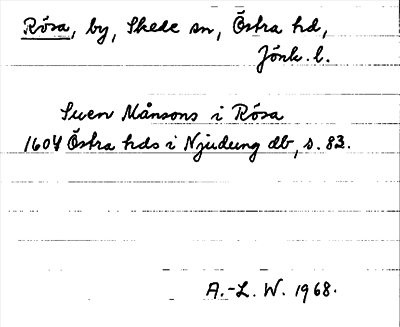 Rösa, by, Skede sn, Östra hd,
Jönk. l.
Swen Månsons i Rösa
1604 Östra hds i Njudung db, s. 83.
A.-L. W. 1968.